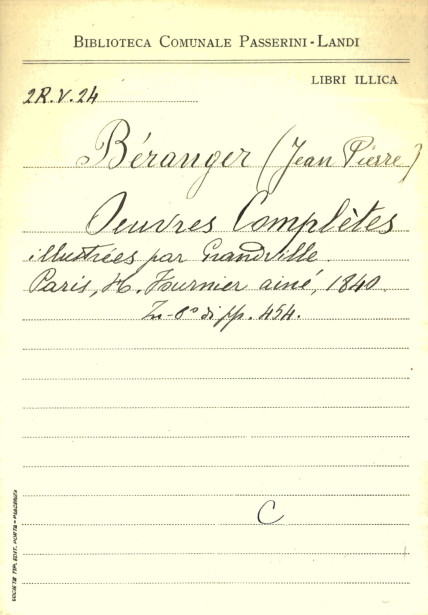 BIBLIOTECA COMUNALE PASSERINI-LANDI
LIBRI ILLICA
2R.V.24
Béranger (Jean Pierre)
Oeuvres Complètes
illustrées par Grandville.
Paris, H. Fournier ainé, 1840.
In-8º di pp. 454.
C
SOCIETÀ TIP. EDIT. PORTA - PIACENZA